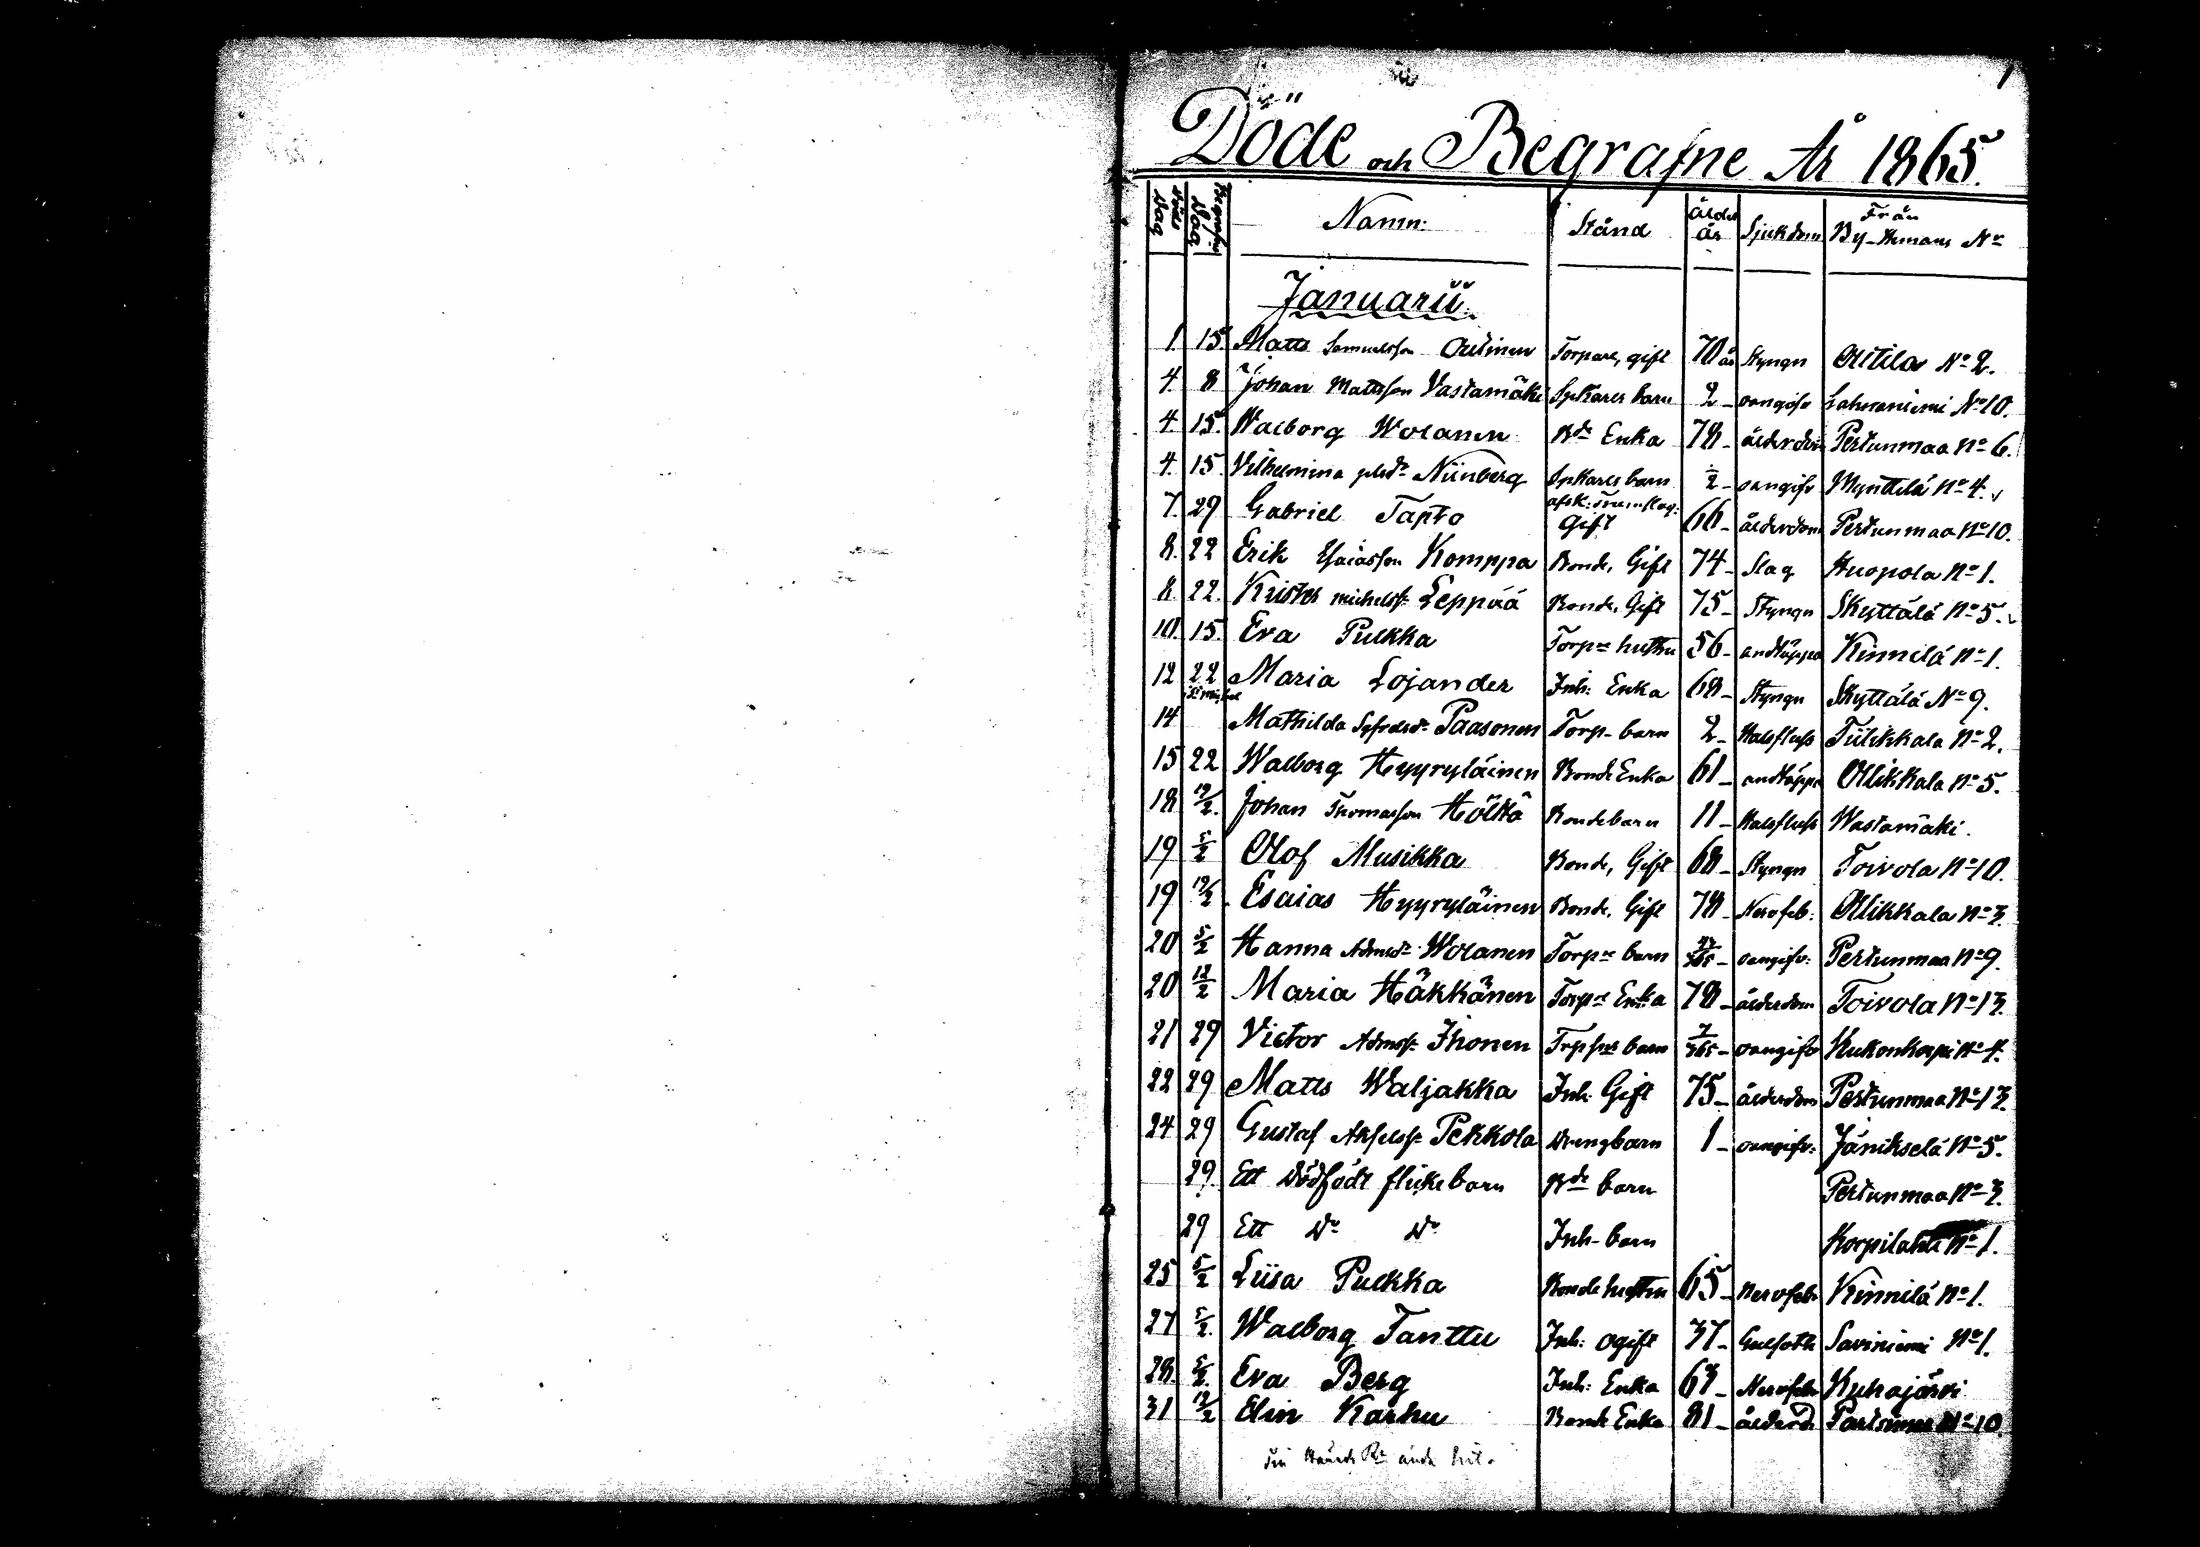 1
Döde och Begrafne År 1865.
Döds Dag Begrafn: Dag Namn: Stånd ålder år Sjukdom Från By-Hemans No
Januarii.
1. 15. Matts Samuelsson Outinen Torpare, gift 70 år Styngn Outila No 2.
4. 8 Johan Mattsson Vastamäki Spkares barn 2 - oangifv Lahnaniemi No 10.
4. 15. Walborg Wolanen Bde Enka 78 - ålderdom Pertunmaa No 6.
4. 15. Vilhelmina Niinberg Spkares barn 1/2 - oangifv Mynttilä No 4.
7. 29 Gabriel Tapto Gift 66 - ålderdom Pertunmaa No 10.
8. 22 Erik Esaiasson Komppa Bonde, Gift 74 - Slag Kuopola No 1.
8. 22. Krister Michelss: Leppää Bonde, Gift 75 - Styngn Skyttälä No 5.
10. 15. Eva Pulkka Torpre hustru 56 - andtäppa Kinnilä No 1.
12 22 Maria Lojander Inh: Enka 68 - Styngn Skyttälä No 9.
14 Mathilda Paasonen Torp- barn 2 - Halsfluss Tuilikkala No 2.
15 22 Walborg Hyyryläinen Bonde Enka 61 - andtäppa Ollikkala No 5.
18 12/2. Johan Thomasson Hölttä Bondebarn 11 - Halsfluss Wastamäki.
19 5/2 Olof Musikka Bonde, Gift 68 - Styngn Toivola No 10.
19 12/2. Esaias Hyyryläinen Bonde, Gift 78 - Nervfeb: Ollikkala No 3.
20 5/2 Hanna Admsdr Wolanen Torpre barn /365 - oangifv: Pertunmaa No 9.
20 12/2 Maria Häkkänen Torpre Enka 78 - ålderdom Toivola No 13.
21 29 Victor Admss: Ihonen barn 7/365 - oangifv Kukonkorpi No 4.
22 29 Matts Waljakka Inh. Gift 75 - ålderdom Pertunmaa No 13.
24 29 Gustaf Akselss: Pekkola Drengbarn 1 - oangifv: Jänikselä No 5.
29. Ett Dödfödt flickebarn Bde barn Pertunmaa No 3.
29 Ett Do Do Inh- barn Korpilahti No 1.
25 5/2 Liisa Pulkka Bonde hustru 65 - Nervfeb Kinnilä No 1.
27 5/2. Walborg Tanttu Inh: ogift 37 - Gulsoth Saviniemi No 1.
28. 5/2. Eva Berg Inh: Enka 63 - Nervfeb Kuhajärvi
31 12/2 Elin Karhu Bonde Enka 81 - ålderd. No 10.